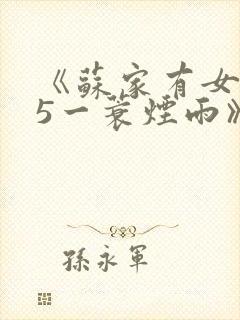 《蘇家有女
5一蓑煙雨》
孫永軍